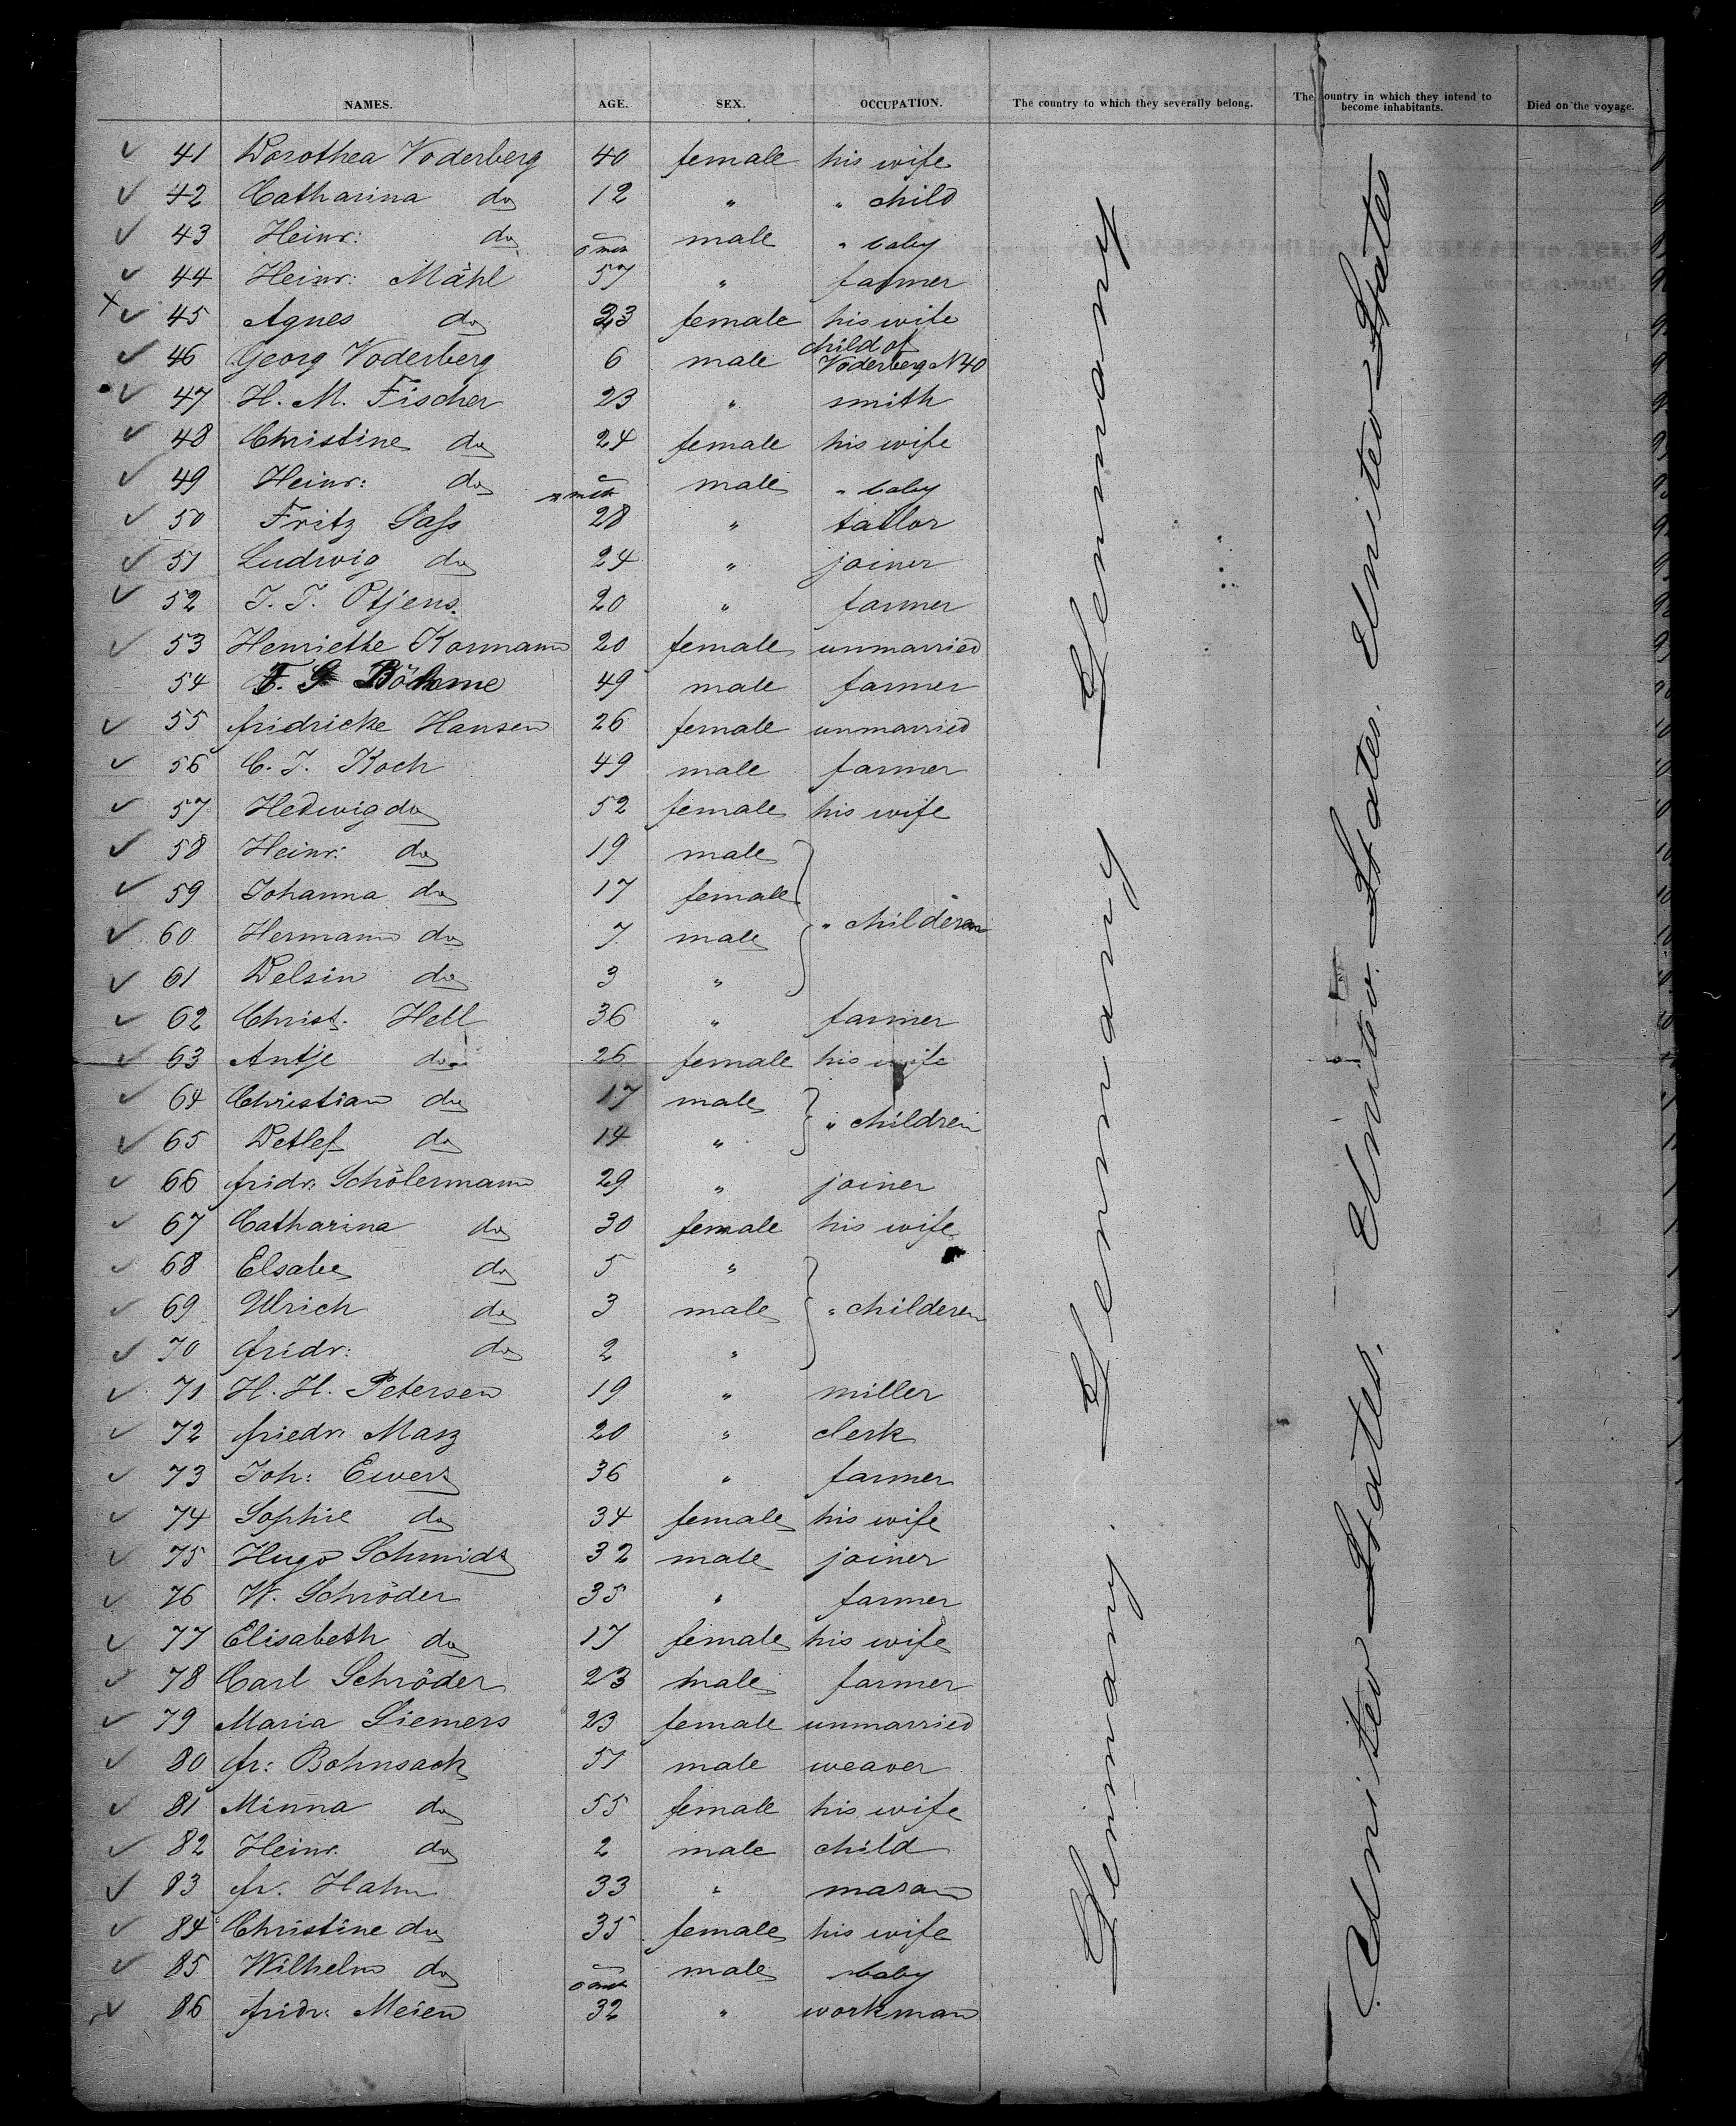 NAMES. AGE. SEX. OCCUPATION. The country to which they severally belong. The country in which they intend to become inhabitants. Died on the voyage.
41 Dorothea Voderberg 40 female his wife
42 Catharina do 12 " " child
43 Heinr: do mth male " baby
44 Heinr: Mähl 57 " farmer
45 Agnes do 23 female his wife
46 Georg Voderberg 6 male child of Voderberg N40
47 H. M. Fischer 23 " smith
48 Christine do 24 female his wife
49 Heinr: do mth male " baby
50 Fritz Sass 28 " tailor
51 Ludwig do 24 " joiner
52 J. J. Otjens. 20 " farmer
53 Henriette Kormann 20 female unmarried
54 Böhme 49 male farmer
55 fridricke Hansen 26 female unmarried
56 C. J. Koch 49 male farmer
57 Hedwig do 52 female his wife
58 Heinr: do 19 male
59 Johanna do 17 female
60 Hermann do 7 male " childeren
61 Delsin do 3 "
62 Christ. Hell 36 " farmer
63 Antje do 26 female his wife
64 Christian do 17 male " children
65 Detlef do 14 "
66 fridr: Schölermann 29 " joiner
67 Catharina do 30 female his wife
68 Elsabe do 5 "
69 Ulrich do 3 male " childeren
70 fridr: do 2 "
71 H. H. Petersen 19 " miller
72 friedr: Masz 20 " clerk
73 Joh: Ewers 36 " farmer
74 Sophie do 34 female his wife
75 Hugo Schmidt 32 male joiner
76 W. Schröder 35 " farmer
77 Elisabeth do 17 female his wife
78 Carl Schröder 23 male farmer
79 Maria Siemers 23 female unmarried
80 fr: Bohnsack 57 male weaver
81 Minna do 55 female his wife
82 Heinr. do 2 male child
83 fr. Hahn 33 " mason
84 Christine do 35 female his wife
85 Wilhelm do mth male baby
86 fridr: Meien 32 " workman
Germany. Germany Germany
United States. United States. United States